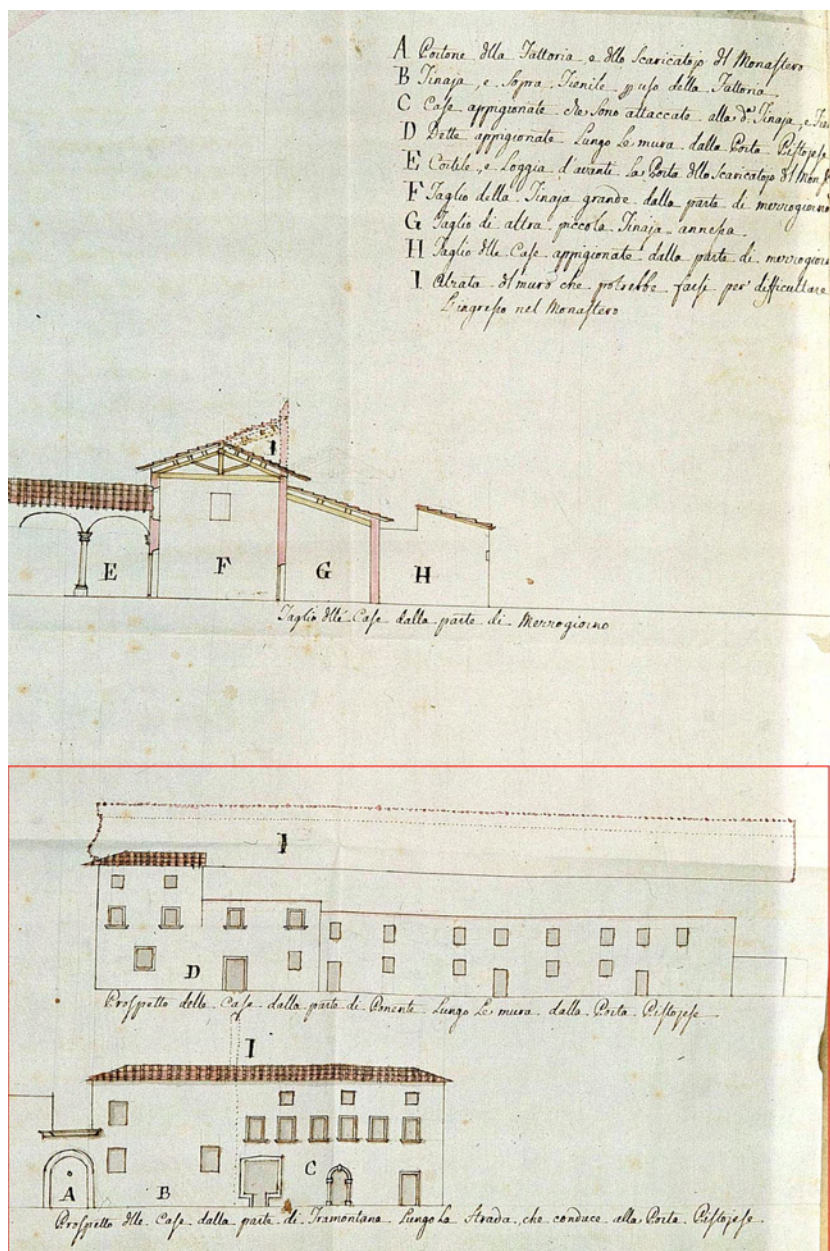 A Portone dlla Fattoria, e dllo Scaricatojo dl Monastero
B Tinaja, e Sopra Fienile p uso della Fattoria
C Case appigionate che sono attaccate alla da. Tinaja, e
D Dette appigionate Lungo Le mura dalla Porta Pistojese
E Cortile, e Loggia d'avanti la Porta dllo Scaricatojo dl
F Taglio della Tinaja grande dalla parte di mezzogiorno
G Taglio di altra piccola Tinaja annessa
H Taglio dlle Case appigionate dalla parte di
I Alzata dl muro che potrebbe farsi per difficultare
L'ingresso nel Monastero
I
E F G H
Taglio dlle Case dalla parte di Mezzogiorno
I
D
Prospetto delle Case dalla parte di Ponente Lungo Le mura dalla Porta Pistojese
I
A B C
Prospetto dlle Case dalla parte di Tramontana Lungo La Strada, che conduce alla Porta Pistojese